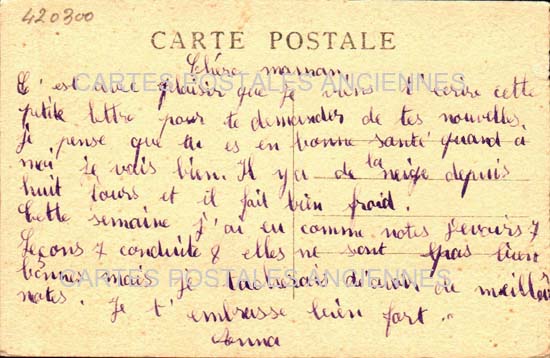 420300
CARTE POSTALE
Chère maman
C'est avec plaisir que je viens t'écrire cette
petite lettre pour te demander de tes nouvelles,
je pense que tu es en bonne santé quand à
moi je vais bien. Il y a de la neige depuis
huit jours et il fait bien froid.
Cette semaine j'ai eu comme notes Devoirs 7
Leçons 7 conduite 8 elles ne sont pas bien
bonnes mais je d'avoir de meilleures
notes. Je t'embrasse bien fort.
Anna
CARTES POSTALES ANCIENNES
CARTES POSTALES ANCIENNES